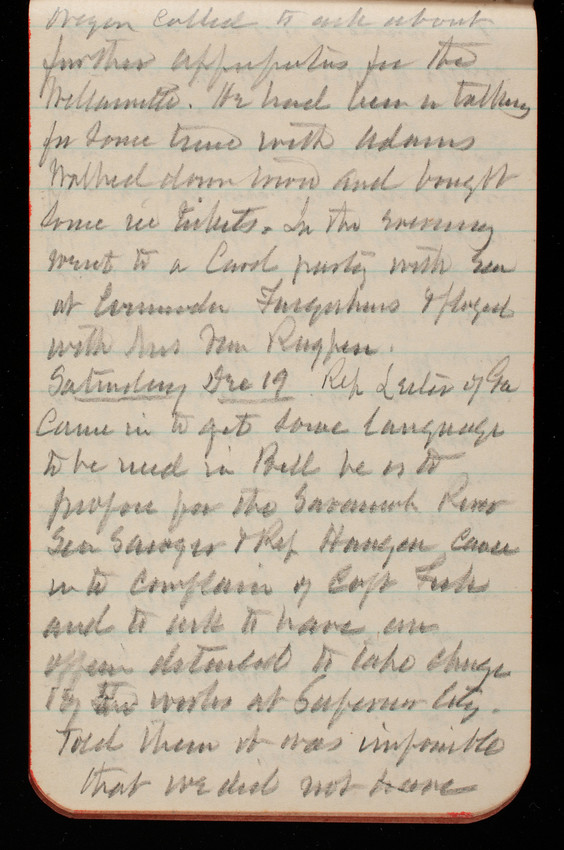 Oregon called to ask about
further appropriations for the
Willamette. He had been in talking
for some time with Adams
Walked down town and bought
some tickets. In the evening
went to a Card party with Gen
at Commander & played
with Mrs Van
Saturday Dec 19 Rep Lester of Ga
Came in to get some language
to be used in Bill he is to
propose for the Savannah River
Sen Sawyer & Rep Haugen came
in to complain of Capt
and to ask to have an
officer detailed to take charge
of the works at Superior City.
Told them it was impossible
that we did not have